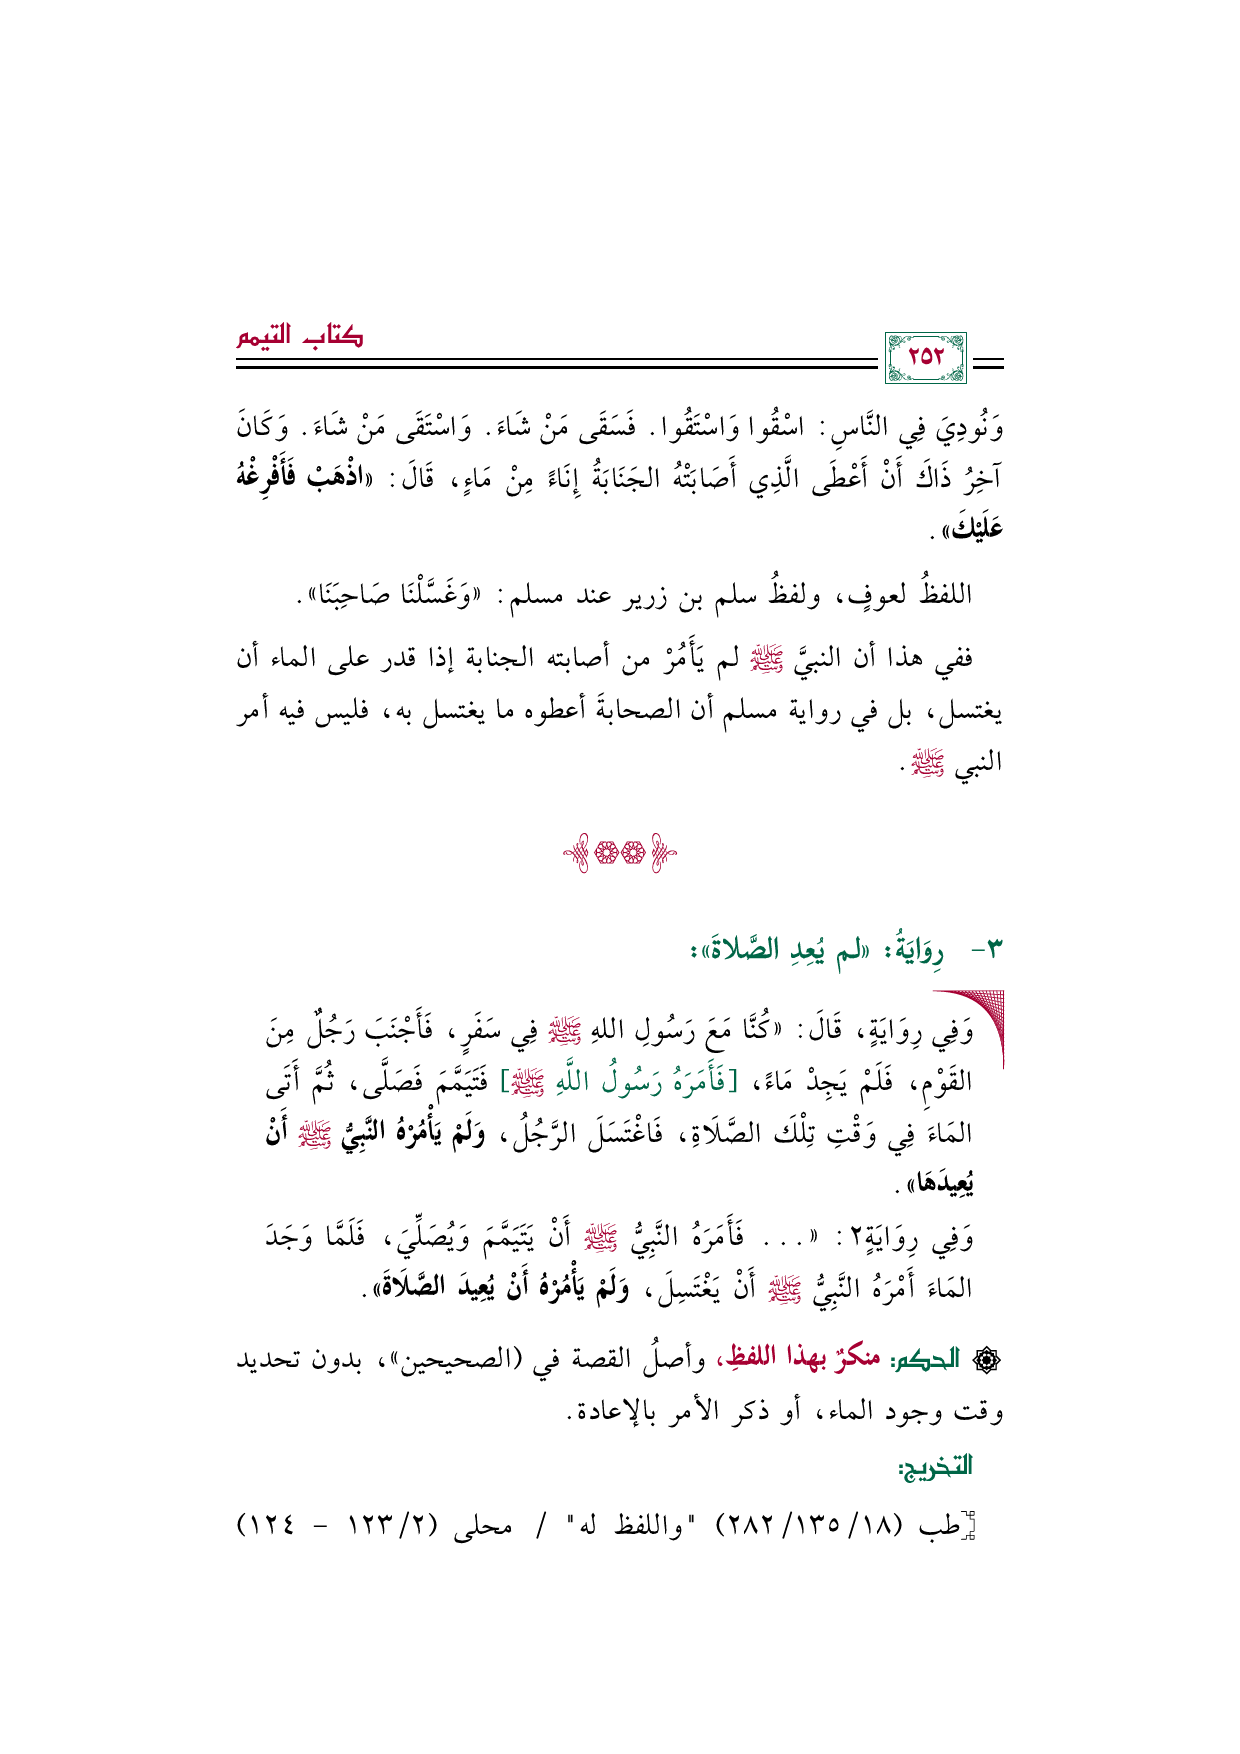 كتاب التيمم
٢٥٢
وَنُودِيَ فِي النَّاسِ: اسْقُوا وَاسْتَقُوا. فَسَقَى مَنْ شَاءَ. وَاسْتَقَى مَنْ شَاءَ. وَكَانَ
آخِرُ ذَاكَ أَنْ أَعْطَى الَّذِي أَصَابَتْهُ الجَنَابَةُ إِنَاءً مِنْ مَاءٍ، قَالَ: «اذْهَبْ فَأَفْرِغْهُ
عَلَيْكَ».
اللفظُ لعوفٍ، ولفظُ سلم بن زرير عند مسلم: «وَغَسَّلْنَا صَاحِبَنَا».
ففي هذا أن النبيَّ ﷺ لم يَأَمُرْ من أصابته الجنابة إذا قدر على الماء أن
يغتسل، بل في رواية مسلم أن الصحابةَ أعطوه ما يغتسل به، فليس فيه أمر
النبي ﷺ.
٣- رِوَايَةُ: «لم يُعِدِ الصَّلاةَ»:
وَفِي رِوَايَةٍ، قَالَ: «كُنَّا مَعَ رَسُولِ اللهِ ﷺ فِي سَفَرٍ، فَأَجْنَبَ رَجُلٌ مِنَ
القَوْمِ، فَلَمْ يَجِدْ مَاءً، [فَأَمَرَهُ رَسُولُ اللَّهِ ﷺ] فَتَيَمَّمَ فَصَلَّى، ثُمَّ أَتَى
المَاءَ فِي وَقْتِ تِلْكَ الصَّلَاةِ، فَاغْتَسَلَ الرَّجُلُ، وَلَمْ يَأْمُرْهُ النَّبِيُّ ﷺ أَنْ
يُعِيدَهَا».
وَفِي رِوَايَةٍ٢: «... فَأَمَرَهُ النَّبِيُّ ﷺ أَنْ يَتَيَمَّمَ وَيُصَلِّيَ، فَلَمَّا وَجَدَ
المَاءَ أَمْرَهُ النَّبِيُّ ﷺ أَنْ يَغْتَسِلَ، وَلَمْ يَأْمُرْهُ أَنْ يُعِيدَ الصَّلَاةَ».
الحكم: منكرٌ بهذا اللفظِ، وأصلُ القصة في (الصحيحين»، بدون تحديد
وقت وجود الماء، أو ذكر الأمر بالإعادة.
التخريج:
[طب (١٨/ ١٣٥/ ٢٨٢) "واللفظ له" / محلى (٢/ ١٢٣ – ١٢٤)